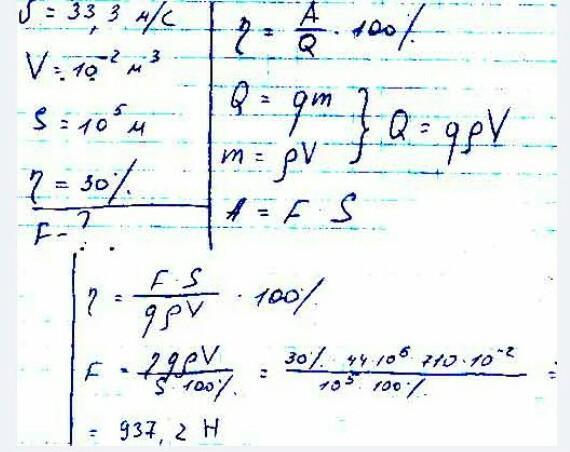 υ = 33,3 м/с
V = 10⁻² м³
S = 10⁵ м
η = 30%
F - ?
η = A/Q · 100%
Q = qm
m = ρV
} Q = qρV
A = F · S
η = F·S/qρV · 100%
F = ηqρV/S·100% = 30% · 44·10⁶ · 710·10⁻²/10⁵ · 100% =
= 937,2 Н